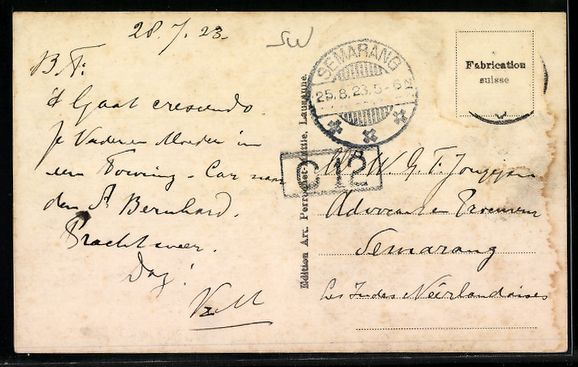 28.7.23.
SW
B.T:
't Gaat crescendo
Je Vader en Moeder in
een Touring-Car naar
den St Bernhard.
Prachtweer.
Dag!
V en M
Edition Art. Perrochet-Matile, Lausanne.
SEMARANG
25.8.23.5-6
C 12
Fabrication
suisse
W. G. F.
Advocaat en Procureur
Semarang
Les Indes Néerlandaises